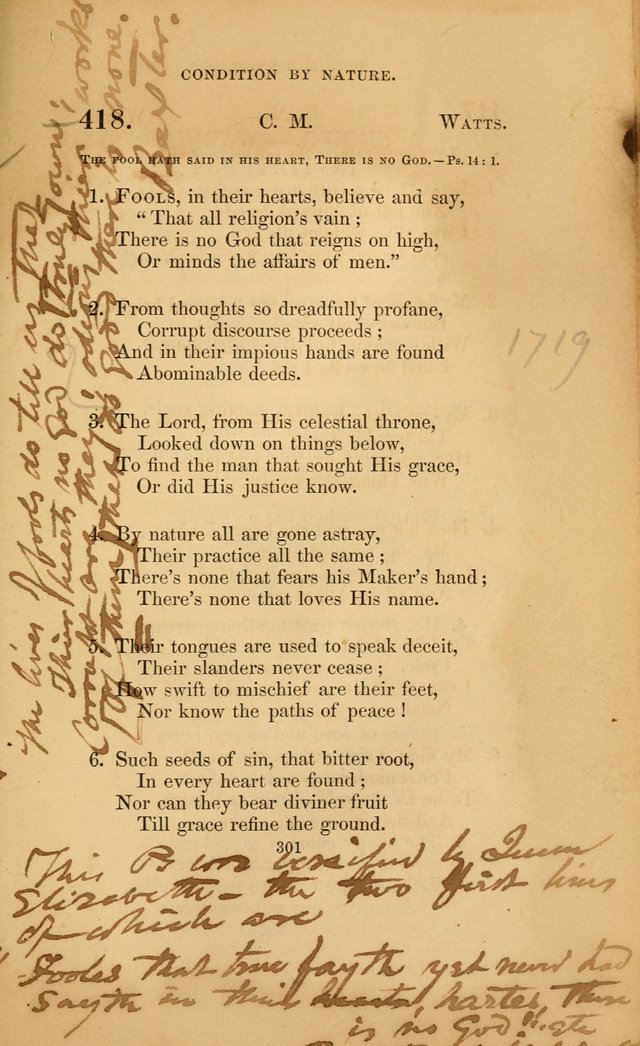 CONDITION BY NATURE.
418. C. M. WATTS.
THE FOOL HATH SAID IN HIS HEART, THERE IS NO GOD.—Ps. 14: 1.
1. FOOLS, in their hearts, believe and say,
“ That all religion's vain ;
There is no God that reigns on high,
Or minds the affairs of men.”
2. From thoughts so dreadfully profane,
Corrupt discourse proceeds ;
And in their impious hands are found
Abominable deeds.
1719
3. The Lord, from His celestial throne,
Looked down on things below,
To find the man that sought His grace,
Or did His justice know.
4. By nature all are gone astray,
Their practice all the same ;
There's none that fears his Maker's hand ;
There's none that loves His name.
5. Their tongues are used to speak deceit,
Their slanders never cease ;
How swift to mischief are their feet,
Nor know the paths of peace !
6. Such seeds of sin, that bitter root,
In every heart are found ;
Nor can they bear diviner fruit
Till grace refine the ground.
301
This Ps was versified by Queen
Elizabeth – the two first lines
of which are
Fooles that true fayth yet never had
Sayth in their hearts, hartes, there
is no God! &c
The lives of fools do tell us that
Their hearts no God do truly own;
Corrupt are they, odious their works
For them there is good there is none.
Baxter.